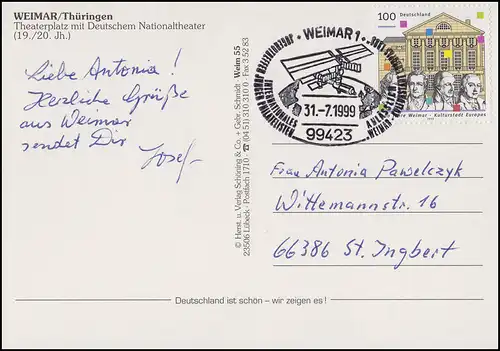 WEIMAR/Thüringen
Theaterplatz mit Deutschem Nationaltheater
(19./20. Jh.)
Liebe Antonia!
Herzliche Grüße
aus Weimar
sendet Dir
Josef
© Herst. u. Verlag Schöning & Co. + Gebr. Schmidt Weim 55
23506 Lübeck · Postfach 1710 · ☎ (04 51) 310 310 · Fax 3 52 83
· WEIMAR 1 ·
INTERNATIONALES
31.-7.1999
99423
100 Deutschland
Weimar – Kulturstadt Europas
Frau Antonia Pawelczyk
Wittemannstr. 16
66386 St. Ingbert
Deutschland ist schön – wir zeigen es!